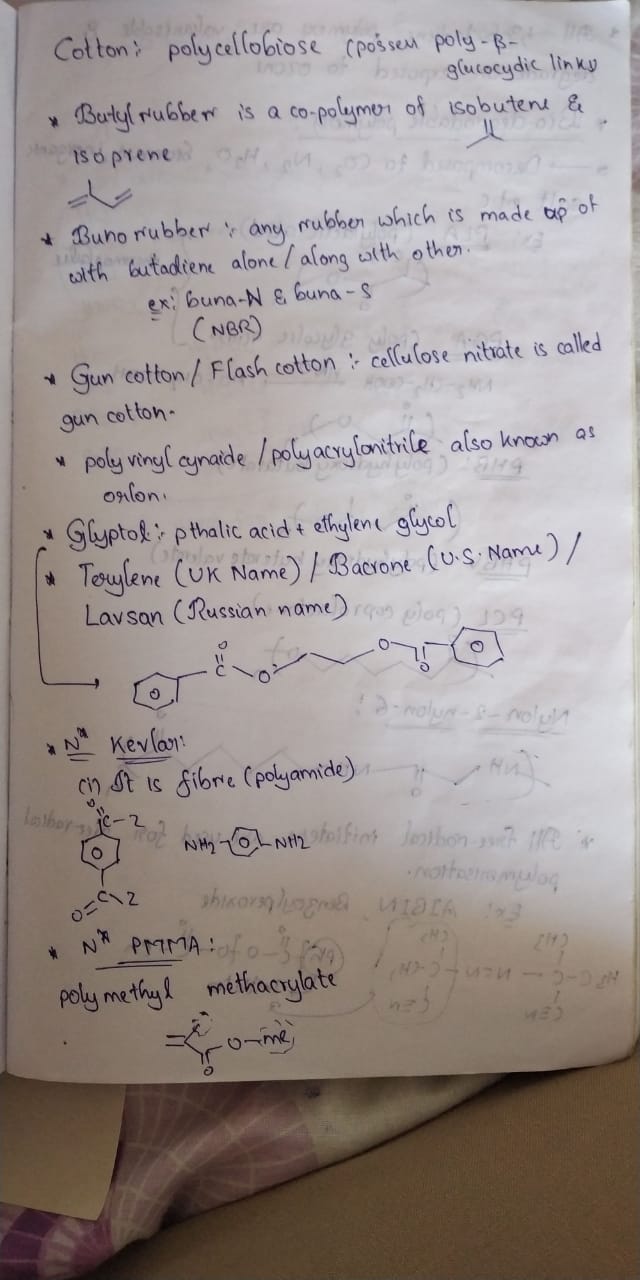 Cotton: polycellobiose (possess poly-β-
glucocydic links
* Butyl rubber is a co-polymer of isobutene &
isoprene
* Buno rubber : any rubber which is made up of
with butadiene alone / along with other.
ex: buna-N & buna-S
(NBR)
* Gun cotton / Flash cotton :- cellulose nitrate is called
gun cotton-
* poly vinyl cynaide / polyacrylonitrile also known as
orlon.
* Glyptol :- pthalic acid + ethylene glycol
* Terylene (UK Name) / Bacrone (U.S. Name) /
Lavsan (Russian name)
O C O O O
* N* Kevlar:
(i) It is fibre (polyamide)
O C-2
NH2 NH2
O=C 2
* N* PMMA:
poly methyl methacrylate
O-me
O